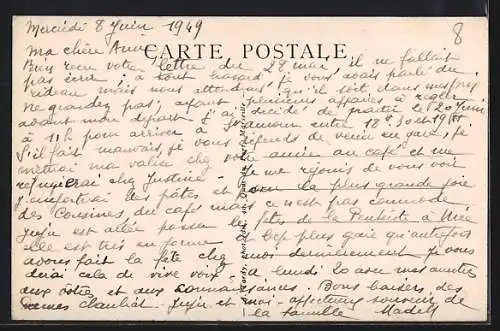 Mercredi 8 Juin 1949
8
CARTE POSTALE
Ma chère Anna
Bien reçu votre lettre du 29 mai, il ne fallait
pas écrire à tout hasard, je vous avais parlé du
rideau mais nous attendrons qu'il soit dans
Ne grondez pas, ayant plusieurs affaires à régler
avant mon départ j'ai décidé de partir le 20 juin
à 11h pour arriver à entre 18h30 et 19h
S'il fait mauvais, je vous défends de venir en gare, je
mettrai ma valise chez votre amie au café et me
réfugierai chez Justine. Je me réjouis de vous voir
J'emporterai des pâtes et la plus grande joie
des Cousines, du café mais ce n'est pas commode
Juju est allée passer les fêtes de la Pentecôte à Nice
elle est très en forme bcp plus gaie qu'autrefois
avons fait la fête chez nous dernièrement je vous
dirai cela de vive voix. A lundi 20 avec mes amitiés
aux vôtres et aux connaissances. Bons baisers des
Juju et moi affectueux souvenir de
la famille Madel